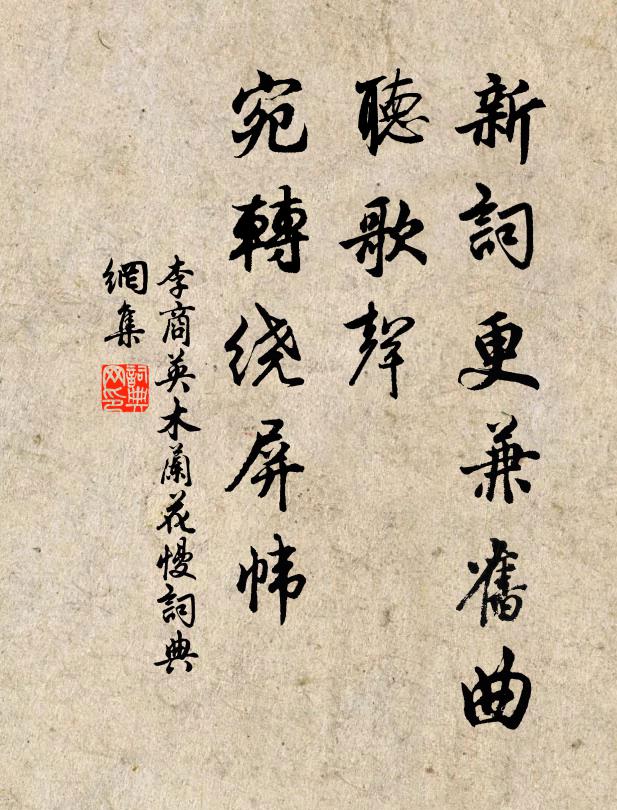 新詞更兼舊曲
聽歌聲
宛轉绕屏帏
李商英木蘭花慢詞典
網集
詞典
网印